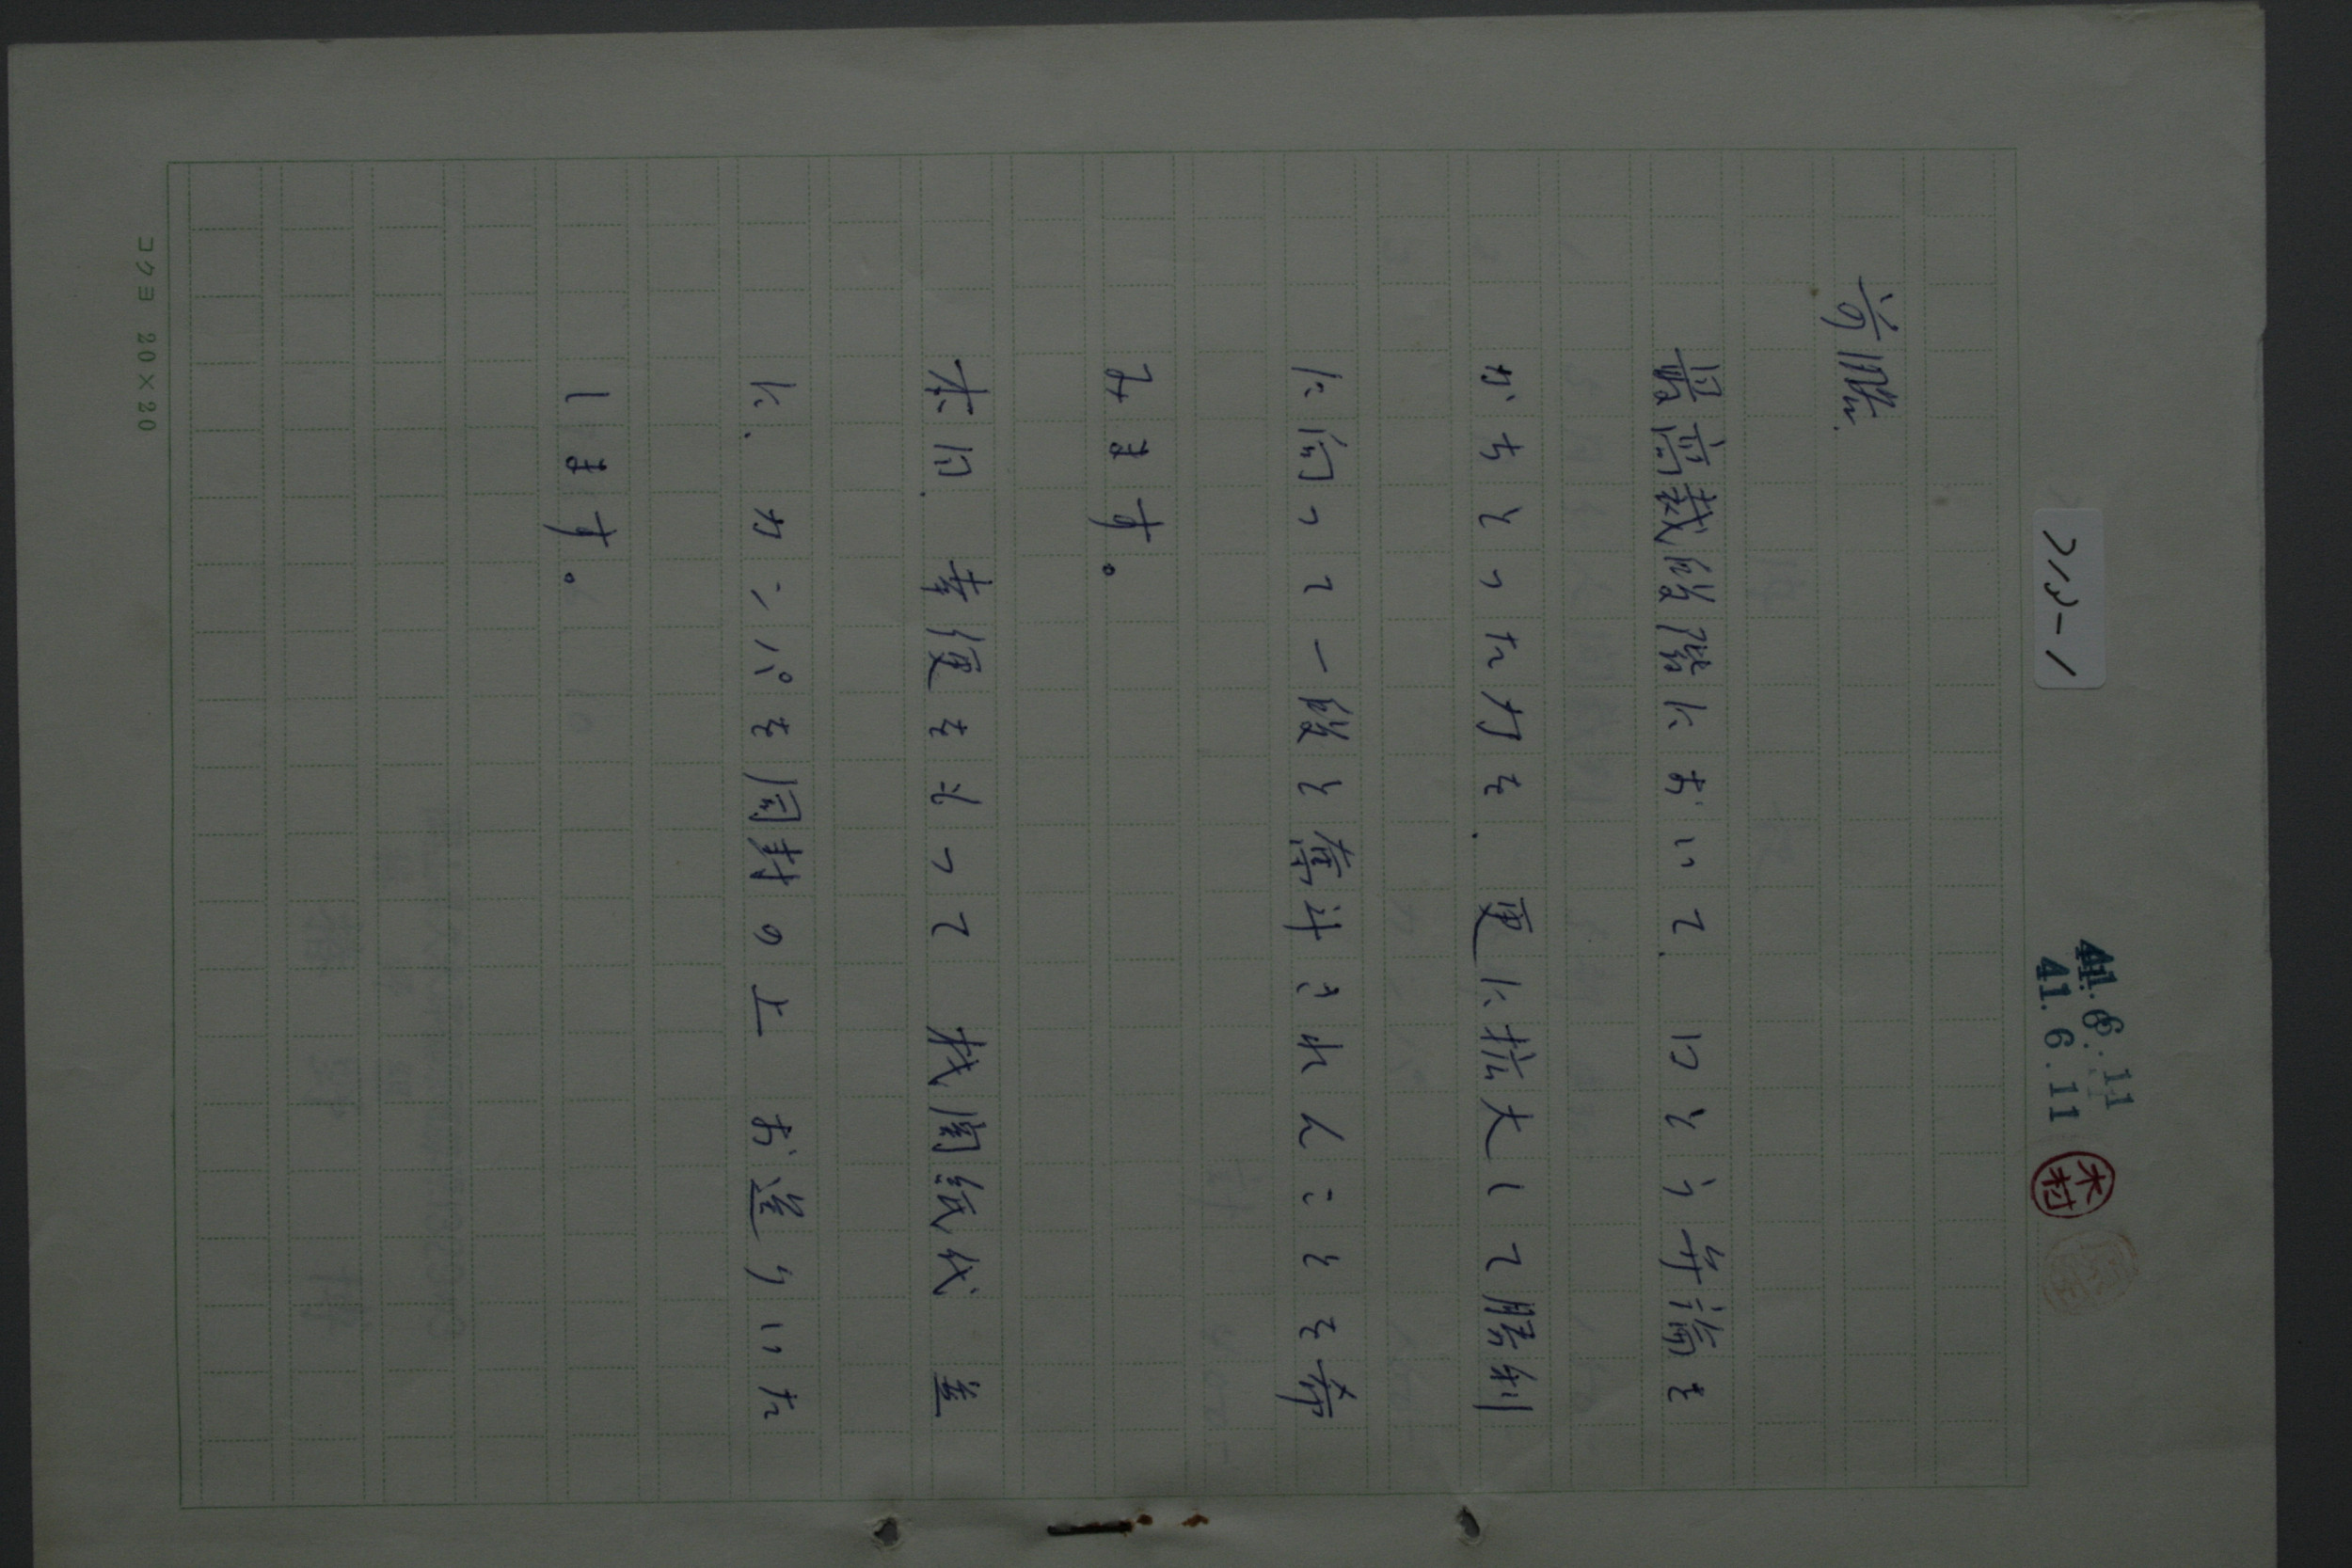 41.6.11
41.6.11
木村
前略
最高裁段階において、口とう弁論を
かちとった力を、更に拡大して勝利
に向って一段と奮斗されんことを希
みます。
本日、幸便をもって 機関紙代 並
に、カンパを同封の上 お送りいた
します。
コクヨ 20×20